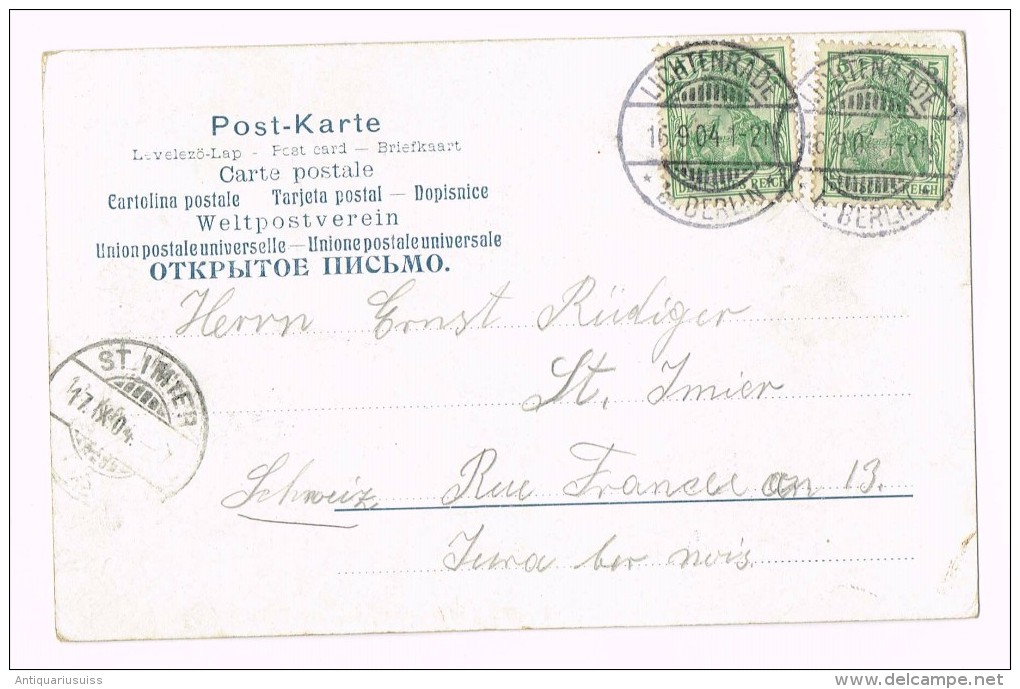 Post-Karte
Levelezö-Lap - Post card — Briefkaart
Carte postale
Cartolina postale Tarjeta postal — Dopisnice
Weltpostverein
Union postale universelle — Unione postale universale
ОТКРЫТОЕ ПИСЬМО.
LICHTENRADE
16.9.04.1-2N
* b. BERLIN
5
DEUTSCHES REICH
LICHTENRADE
16.9.04.1-2N
b. BERLIN
5
DEUTSCHES REICH
Herrn Ernst Rüdiger
St. Imier
ST. IMIER
17.IX.04.
Schweiz Rue 13.
Jura ber nois.
Antiquariusuiss
delcampe.net